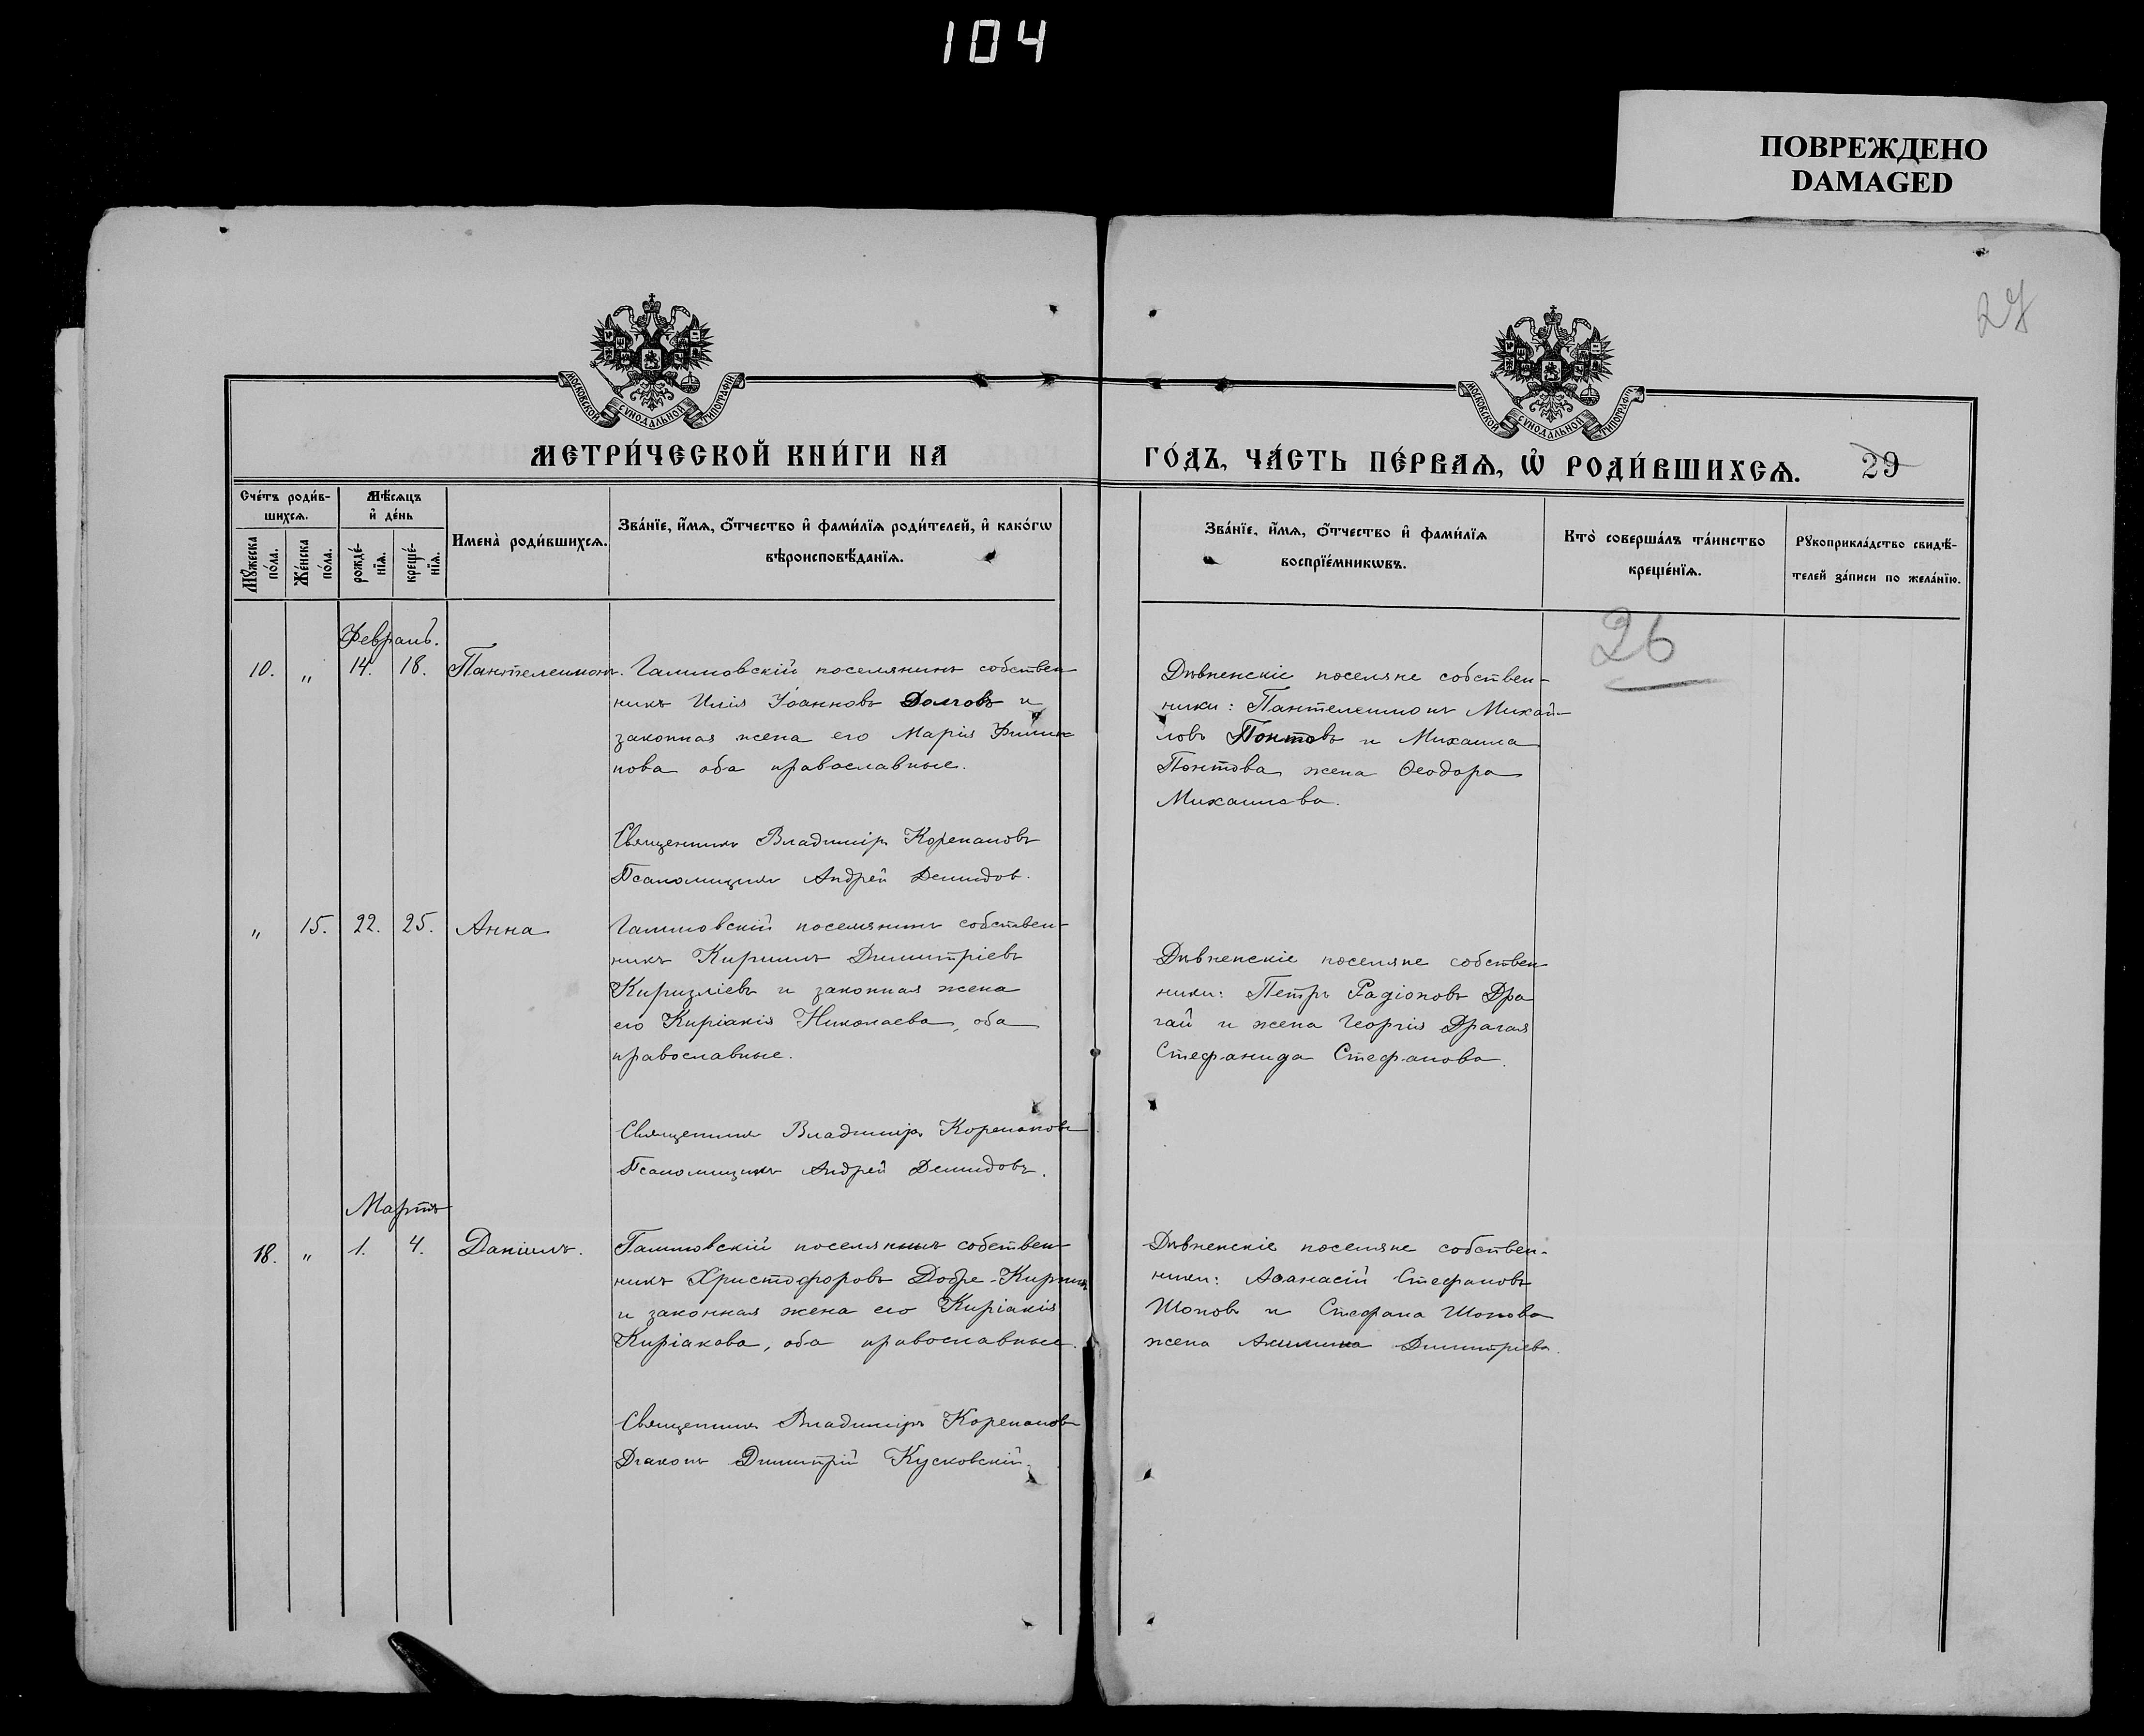 104
ПОВРЕЖДЕНО
DAMAGED
27
МОСКОВСКОЙ СѴНОДАЛЬНОЙ ТИПОГРАФІИ
МОСКОВСКОЙ СѴНОДАЛЬНОЙ ТИПОГРАФІИ
МЕТРИ́ЧЕСКОЙ КНИ́ГИ НА
ГО́ДЪ, ЧА́СТЬ ПЕ́РВАѦ, Ѡ҆ РОДИ́ВШИХСѦ. 29
Счетъ роди́в-
шихсѧ.
Мѣ́сѧцъ
и҆ де́нь
Мꙋ́жеска по́ла.
Же́нска по́ла.
рожде́-нїѧ.
креще́-нїѧ.
Имена̀ роди́вшихсѧ.
Зва́нїе, и҆́мѧ, ѻ҆́тчество и҆ фами́лїѧ роди́телей, и҆ како́гѡ
вѣроисповѣ́данїѧ.
Зва́нїе, и҆́мѧ, ѻ҆́тчество и҆ фами́лїѧ
воспрїе́мникѡвъ.
Кто̀ соверша́лъ та́инство
креще́нїѧ.
Рꙋкоприкла́дство свидѣ́-
телей за́писи по жела́нїю.
26
Февраль.
10. „ 14. 18. Пантелеимонъ. Галиовскій поселянинъ собствен
никъ Илія Іоанновъ Долговъ и
законная жена его Марія Филип-
пова оба православные.
Священникъ Владиміръ Корепановъ
Псаломщикъ Андрей Демидов.
Дѣвненскіе поселяне собствен-
ники: Пантелеимонъ Михай-
ловъ Понтовъ и Михаила
Понтова жена Ѳеодора
Михаилова.
„ 15. 22. 25. Анна
Галиовскій поселянинъ собствен-
никъ Кириллъ Димитріевъ
Киризліевъ и законная жена
его Киріакія Николаева, оба
православные.
Священникъ Владиміръ Корепановъ
Псаломщикъ Андрей Демидовъ.
Дѣвненскіе поселяне собствен
ники: Петръ Радіоновъ Дра
гай и жена Георгія Драгая
Стефанида Стефанова.
Мартъ
18. „ 1. 4. Даніилъ.
Галиовскій поселянинъ собствен-
никъ Христофоровъ Добре-
и законная жена его Киріакія
Киріакова, оба православные.
Священникъ Владиміръ Корепановъ
Діаконъ Димитрій Кусковскій.
Дѣвненскіе поселяне собствен-
ники: Аѳанасій Стефановъ
Шоповъ и Стефана Шопова
жена Акилина Димитріева.